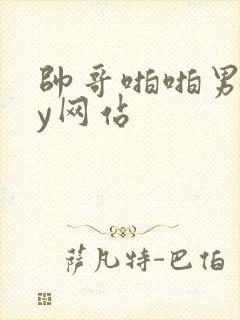 帥哥啪啪男
y网佔
萨凡特-巴伯